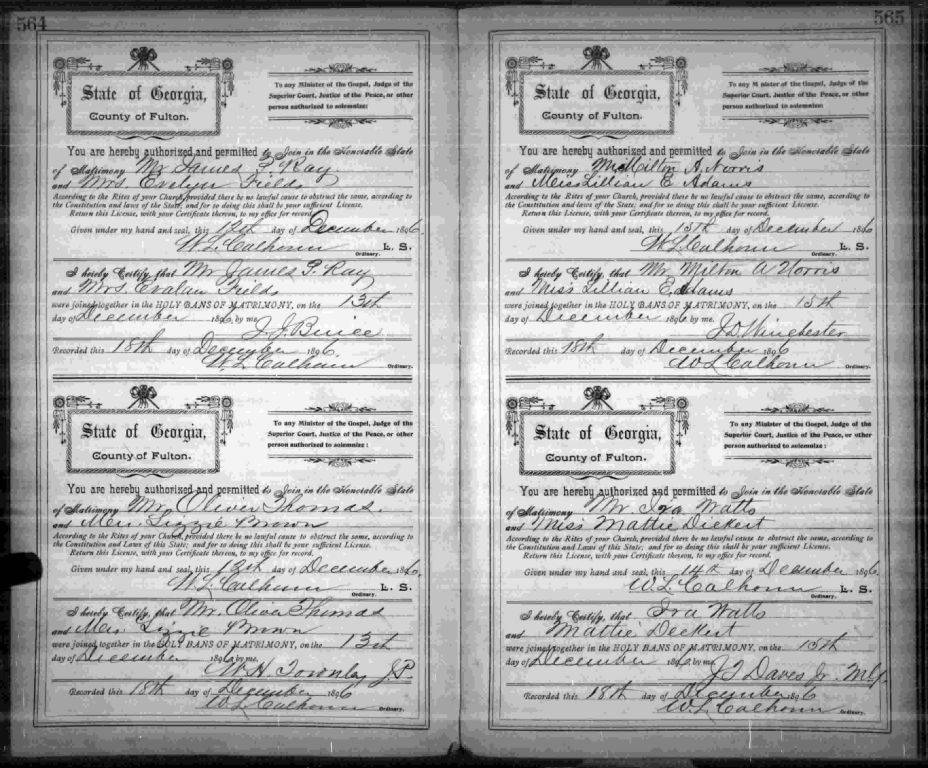 564
State of Georgia,
County of Fulton.
To any Minister of the Gospel, Judge of the
Superior Court, Justice of the Peace, or other
person authorized to solemnize:
You are hereby authorized and permitted to Join in the Honorable State
of Matrimony Mr James F. Ray
and Mrs. Evelyn Fields
According to the Rites of your Church, provided there be no lawful cause to obstruct the same, according to
the Constitution and laws of the State; and for so doing this shall be your sufficient License.
Return this License, with your Certificate thereon, to my office for record.
Given under my hand and seal, this 12th day of December 1896.
W. L. Calhoun L. S.
Ordinary.
I hereby Certify, that Mr James F. Ray
and Mrs. Evalan Fields
were joined together in the HOLY BANS OF MATRIMONY, on the 13th
day of December 1896 by me.
J. J. Buice
Recorded this 18th day of December 1896.
W. L. Calhoun Ordinary.
State of Georgia,
County of Fulton.
To any Minister of the Gospel, Judge of the
Superior Court, Justice of the Peace, or other
person authorized to solemnize:
You are hereby authorized and permitted to Join in the Honorable State
of Matrimony Mr. Oliver Thomas.
and Lizzie Brown
According to the Rites of your Church, provided there be no lawful cause to obstruct the same, according to
the Constitution and Laws of this State; and for so doing this shall be your sufficient License.
Return this License, with your Certificate thereon, to my office for record.
Given under my hand and seal, this 12th day of December 1896.
W. L. Calhoun L. S.
Ordinary.
I hereby Certify, that Mr. Oliva Thomas
and Lizzie Brown
were joined together in the HOLY BANS OF MATRIMONY, on the 13th
day of December 1896 by me.
W. H. Townley J.P.
Recorded this 18th day of December 1896
W. L. Calhoun Ordinary.
565
State of Georgia,
County of Fulton.
To any Minister of the Gospel, Judge of the
Superior Court, Justice of the Peace, or other
person authorized to solemnize:
You are hereby authorized and permitted to Join in the Honorable State
of Matrimony Mr Milton A. Norris
and Miss Lillian E. Adams
According to the Rites of your Church, provided there be no lawful cause to obstruct the same, according to
the Constitution and laws of the State; and for so doing this shall be your sufficient License.
Return this License, with your Certificate thereon, to my office for record.
Given under my hand and seal, this 15th day of December 1896
W. L. Calhoun L. S.
Ordinary.
I hereby Certify, that Mr. Milton A Norris
and Miss Lillian E. Adams
were joined together in the HOLY BANS OF MATRIMONY, on the 15th
day of December 1896 by me.
J. D. Winchester
Recorded this 18th day of December 1896
W. L. Calhoun Ordinary.
State of Georgia,
County of Fulton.
To any Minister of the Gospel, Judge of the
Superior Court, Justice of the Peace, or other
person authorized to solemnize:
You are hereby authorized and permitted to Join in the Honorable State
of Matrimony Mr. Ira Watts
and Miss Mattie Deckert
According to the Rites of your Church, provided there be no lawful cause to obstruct the same, according to
the Constitution and Laws of this State; and for so doing this shall be your sufficient License.
Return this License, with your Certificate thereon, to my office for record.
Given under my hand and seal, this 14th day of December 1896.
W. L. Calhoun L. S.
Ordinary.
I hereby Certify, that Ira Watts
and Mattie Deckert
were joined together in the HOLY BANS OF MATRIMONY, on the 15th
day of December 1896 by me.
J. T. Daves Jr. M.G.
Recorded this 18th day of December 1896
W. L. Calhoun Ordinary.